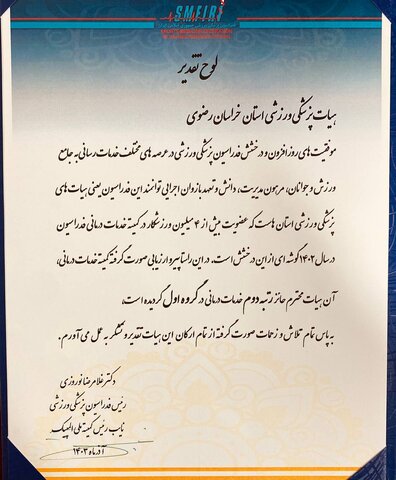 SMFIRI
لوح تقدیر
هیات پزشکی ورزشی استان خراسان رضوی
موفقیت های روز افزون و درخشش فدراسیون پزشکی ورزشی در عرصه های مختلف خدمات رسانی به جامع
ورزش و جوانان، مرهون مدیریت، دانش و تعهد بازوان اجرایی توانمند این فدراسیون یعنی هیات های
پزشکی ورزشی استان هاست که عضویت بیش از ۴ میلیون ورزشکار در کمیته خدمات درمانی فدراسیون
در سال ۱۴۰۲ گوشه ای از این درخشش است. در این راستا پیرو ارزیابی صورت گرفته کمیته خدمات درمانی،
آن هیات محترم حائز رتبه دوم خدمات درمانی در گروه اول گردیده است،
به پاس تمام تلاش و زحمات صورت گرفته از تمام ارکان این هیات تقدیر و تشکر به عمل می آورم.
دکتر غلامرضا نوروزی
رئیس فدراسیون پزشکی ورزشی
نایب رئیس کمیته ملی المپیک
آذرماه ۱۴۰۳